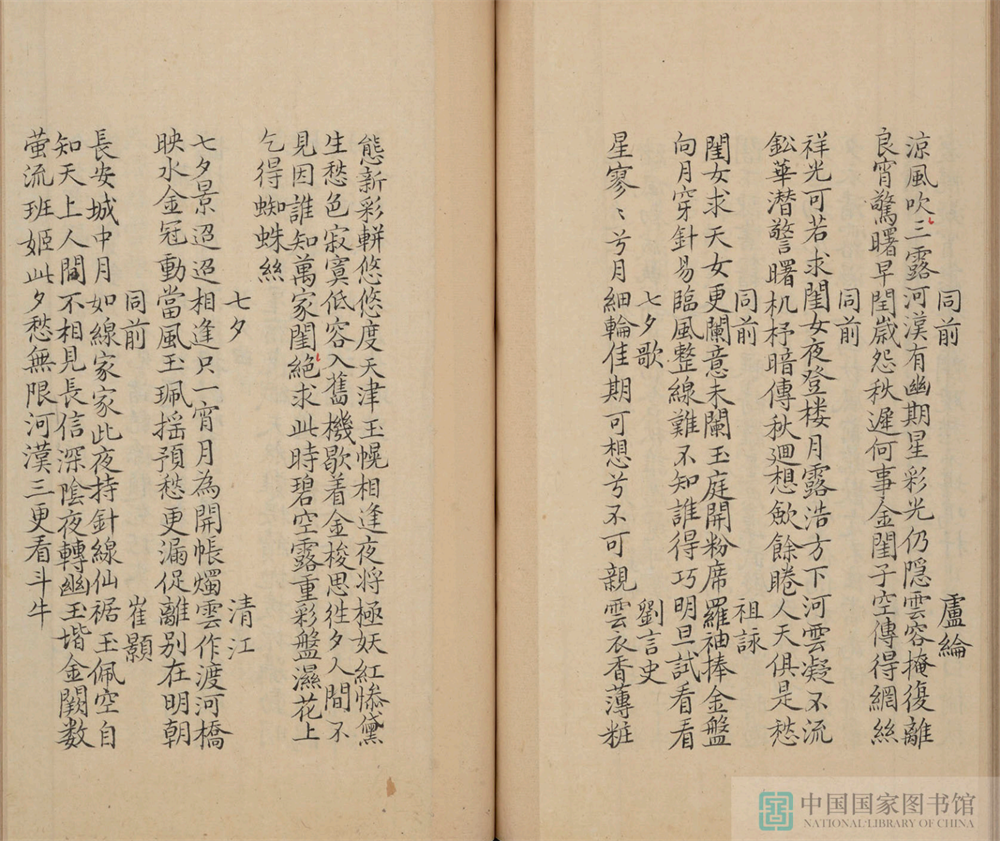 同前 盧綸
涼風吹三露河漢有幽期星彩光仍隠雲容掩復離
良宵驚曙早閏歲怨秋遲何事金閨子空傳得網絲
同前
祥光可若求閨女夜登楼月露浩方下河雲凝不流
鈆華潜警曙机杼暗傳秋廻想歛餘睠人天俱是愁
同前 祖詠
閨女求天女更闌意未闌玉庭開粉席羅袖捧金盤
向月穿針易臨風整線難不知誰得巧明旦試看看
七夕歌 劉言史
星寥〻兮月細輪佳期可想兮不可親雲衣香薄粧
態新彩軿悠悠度天津玉幌相逢夜將極妖紅惨黛
生愁色寂寞低容入舊機歇着金梭思徃夕人間不
見因誰知萬家閨絶求此時碧空露重彩盤濕花上
乞得蜘蛛絲
七夕 清江
七夕景迢迢相逢只一宵月為開帳燭雲作渡河橋
映水金冠動當風玉珮揺預愁更漏促離別在明朝
同前 崔顥
長安城中月如線家家此夜持針線仙裾玉佩空自
知天上人間不相見長信深陰夜轉幽玉堦金闕数
萤流班姬此夕愁無限河漢三更看斗牛
中国国家图书馆
NATIONAL LIBRARY OF CHINA